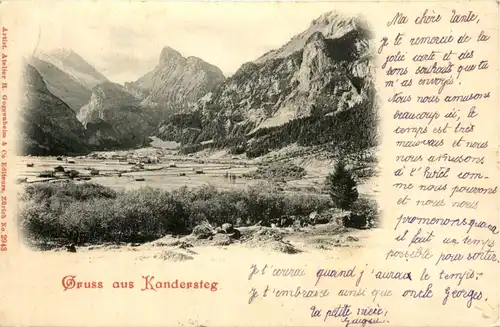 Ma chère tante,
Je te remercie de la
jolie carte et des
bons souhaits que tu
m'as envoyés.
Nous nous amusons
beaucoup ici, le
temps est très
mauvais et nous
nous amusons
à l'hôtel com-
me nous pouvons
et nous nous
promenons quand
il fait un temps
possible pour sortir.
Je t'écrirai quand j'aurai le temps;
Je t'embrasse ainsi que oncle Georges.
ta petite nièce,
Gruss aus Kandersteg.
Artist. Atelier H. Guggenheim & Co Editeurs, Zürich No. 2943